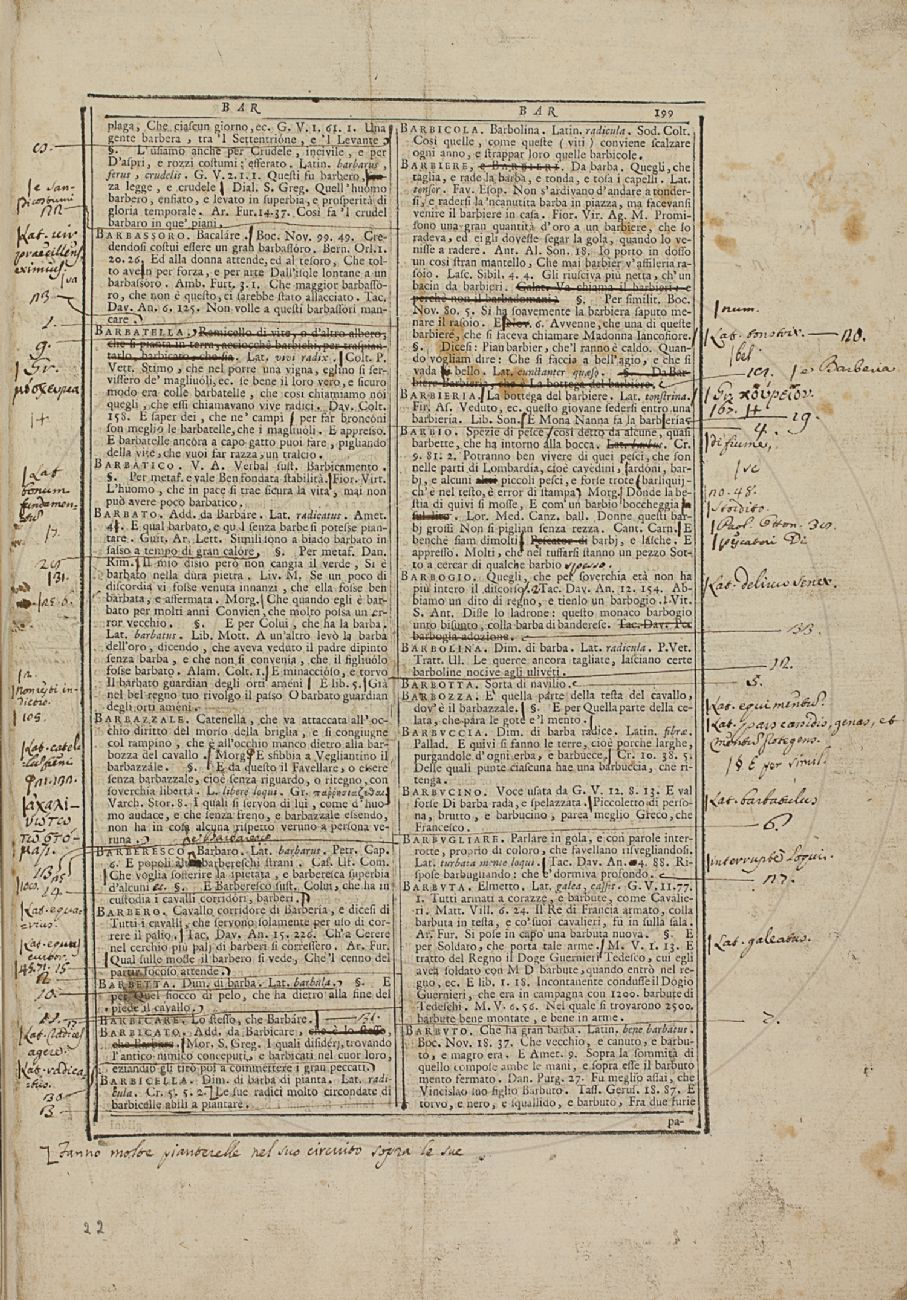 BAR
BAR 199
plaga, Che ciascun giorno, ec. G. V. 1. 61. 1. Una
gente barbera, tra 'l Settentrione, e 'l Levante
§. L'usiamo anche per Crudele, incivile, e per
D'aspri, e rozzi costumi: efferato. Latin. barbarus,
ferus, crudelis. G. V. 2. 1. 1. Questi fu barbero,
za legge, e crudele Dial. S. Greg. Quell'huomo
barbero, enfiato, e levato in superbia, e prosperità di
gloria temporale. Ar. Fur. 14. 37. Così fa 'l crudel
barbaro in que' piani.
BARBASSORO. Bacaláre. Boc. Nov. 99. 49. Cre-
dendosi costui essere un gran barbassóro. Bern. Orl. 1.
20. 26. Ed alla donna attende, ed al tesoro, Che tol-
to aven per forza, e per arte Dall'isole lontane a un
barbassóro. Amb. Furt. 3. 1. Che maggior barbassó-
ro, che non è questo, ci sarebbe stato allacciato. Tac.
Dav. An. 6. 125. Non volle a questi barbassori man-
care.
BARBATELLA. Ramicello di vite, o d'altro albero,
che si pianta in terra, acciocchè barbichi, per traspian-
tarlo, barbicato, che sia. Lat. vivi radix. Colt. P.
Vett. Stimo, che nel porre una vigna, eglino si ser-
vissero de' magliuoli, ec. se bene il loro vero, e sicuro
modo era colle barbatelle, che così chiamiamo noi
quegli, che essi chiamavano vive radici. Dav. Colt.
158. E saper dei, che ne' campi per far bronconi
son meglio le barbatelle, che i magliuoli. E appresso.
E barbatelle ancóra a capo gatto puoi fare, pigliando
della vite, che vuoi far razza, un tralcio.
BARBATICO. V. A. Verbal sust. Barbicamento.
§. Per metaf. e vale Ben fondata stabilità. Fior. Virt.
L'huomo, che in pace si trae sicura la vita, mai non
può avere poco barbatico.
BARBATO. Add. da Barbáre. Lat. radicatus. Amet.
E qual barbato, e qual senza barbe si potesse pian-
tare. Guit. Ar. Lett. Simili sono a biado barbato in
sasso a tempo di gran calóre. §. Per metaf. Dan.
Rim. Il mio disio però non cangia il verde, Sì è
barbato nella dura pietra. Liv. M. Se un poco di
discordia vi fosse venuta innanzi, che ella fosse ben
barbata, e affermata. Morg. Che quando egli è bar-
bato per molti anni Convien, che molto possa un er-
ror vecchio. §. E per Colui, che ha la barba.
Lat. barbatus. Lib. Mott. A un'altro levò la barba
dell'oro, dicendo, che aveva veduto il padre dipinto
senza barba, e che non si convenia, che il figliuolo
fosse barbato. Alam. Colt. 1. E minaccioso, e torvo
Il barbato guardian degli orti ameni E lib. 5. Già
nel bel regno tuo rivolgo il passo O barbato guardian
degli orti améni.
BARBAZZALE. Catenella, che va attaccata all'oc-
chio diritto del morso della briglia, e si congiugne
col rampino, che è all'occhio manco dietro alla bar-
bozza del cavallo. Morg. E sfibbia a Vegliantino il
barbazzále. §. E da questo il Favellare, o essere
senza barbazzale, cioè senza riguardo, o ritegno, con
soverchia libertà. L. libere loqui. Gr.
Varch. Stor. 8. I quali si servon di lui, come d'huo
mo audace, e che senza freno, e barbazzale essendo,
non ha in cosa alcuna rispetto veruno a persona ve-
runa.
BARBERESCO. Barbaro. Lat. barbarus. Petr. Cap.
6. E popoli barbereschi strani. Cas. Uf. Com.
Che voglia sofferire la spietata, e barberesca superbia
d'alcuni ec. §. E Barberesco sust. Colui, che ha in
custodia i cavalli corridóri, barberi.
BARBERO. Cavallo corridore di Barberia, e dicesi di
Tutti i cavalli, che servono solamente per uso di cor-
rere il palio. Tac. Dav. An. 15. 226. Ch'a Cerere
nel cerchio più palj di barberi si corressero. Ar. Fur.
Qual sulle mosse il barbero si vede, Che'l cenno del
partir focoso attende.
BARBETTA. Dim. di barba. Lat. barbula. §. E
per Quel fiocco di pelo, che ha dietro alla fine del
piede il cavallo.
BARBICARE. Lo stesso, che Barbáre.
BARBICATO. Add. da Barbicare, che è lo stesso,
che Barbare. Mor. S. Greg. I quali disidérj, trovando
l'antico nimico conceputi, e barbicati nel cuor loro,
eziandio gli tirò poi a commettere i gran peccati.
BARBICELLA. Dim. di barba di pianta. Lat. radi-
cula. Cr. 5. 5. 2. Le sue radici molto circondate di
barbicelle abili a piantare.
BARBICOLA. Barbolina. Latin. radicula. Sod. Colt.
Così quelle, come queste (viti) conviene scalzare
ogni anno, e strappar loro quelle barbicole.
BARBIERE, e BARBIERO. Da barba. Quegli, che
taglia, e rade la barba, e tonda, e tosa i capelli. Lat.
tonsor. Fav. Esop. Non s'ardivano d'andare a tonder-
si, e radersi la 'ncanutita barba in piazza, ma facevansi
venire il barbiere in casa. Fior. Vir. Ag. M. Promi-
sono una gran quantità d'oro a un barbiere, che lo
radeva, ed ei gli dovesse segar la gola, quando lo ve-
nisse a radere. Ant. Al. Son. 18. Io porto in dosso
un così stran mantello, Che mai barbier v'affileria ra-
soio. Lasc. Sibil. 4. 4. Gli riusciva più netta, ch'un
bacin da barbieri. Galat. Va chiama il barbieri: e
perchè non il barbadomani? §. Per similit. Boc.
Nov. 80. 5. Si ha soavemente la barbiera saputo me-
nare il rasoio. E Nov. 6. Avvenne, che una di queste
barbiere, che si faceva chiamare Madonna Iancofiore.
§. Dicesi: Pian barbier, che'l ranno è caldo. Quan-
do vogliam dire: Che si faccia a bell'agio, e che si
vada bello. Lat. cunctanter quæso. §. Da Bar-
biere Barbieria, che è La bottega del barbiere.
BARBIERIA. La bottega del barbiere. Lat. tonstrina.
Fir. As. Veduto, ec. questo giovane sedersi entro una
barbieria. Lib. Son. E Mona Nanna fa la barbieria
BARBIO. Spezie di pesce così detto da alcune, quasi
barbette, che ha intorno alla bocca. Lat. barbus. Cr.
9. 81. 2. Potranno ben vivere di quei pesci, che son
nelle parti di Lombardia, cioè cavédini, sardóni, bar-
bj, e alcuni altri piccoli pesci, e forse trote (barliquij-
ch'è nel testo, è error di stampa) Morg. Donde la be-
stia di quivi si mosse, E com'un barbio boccheggia
Lor. Med. Canz. ball. Donne questi bar-
bj grossi Non si piglian senza rezza. Cant. Carn. E
benchè siam dimolti Pescator di barbj, e lasche. E
appresso. Molti, che nel tuffarsi stanno un pezzo Sot-
to a cercar di qualche barbio spesso.
BARBOGIO. Quegli, che per soverchia età non ha
più intero il discorso. Tac. Dav. An. 12. 154. Ab-
biamo un dito di regno, e tienlo un barbogio. Vit.
S. Ant. Disse lo ladrone: questo monaco barbogio
unto bisunto, colla barba di banderese. Tac. Dav. Per
barbogia adozione.
BARBOLINA. Dim. di barba. Lat. radicula. P. Vet.
Tratt. Ul. Le querce ancora tagliate, lasciano certe
barboline nocive agli uliveti.
BARBOTTA. Sorta di navilio.
BARBOZZA. E' quella parte della testa del cavallo,
dov' è il barbazzale. §. E per Quella parte della ce-
lata, che pára le gote e 'l mento.
BARBUCCIA. Dim. di barba radice. Latin. fibræ.
Pallad. E quivi si fanno le terre, cioè porche larghe,
purgandole d'ogni erba, e barbucce. Cr. 10. 38. 5.
Delle quali punte ciascuna hae una barbuccia, che ri-
tenga.
BARBUCINO. Voce usata da G. V. 12. 8. 13. E val
forse Di barba rada, e spelazzata. Piccoletto di perso-
na, brutto, e barbucino, parea meglio Greco, che
Francesco.
BARBUGLIARE. Parlare in gola, e con parole inter-
rotte, proprio di coloro, che favellano risvegliandosi.
Lat. turbata mente loqui. Tac. Dav. An. 4. 88. Ri-
spose barbugliando: che e'dormiva profondo.
BARBUTA. Elmetto. Lat. galea, cassis. G. V. 11. 77.
1. Tutti armati a corazze, e barbute, come Cavalie-
ri. Matt. Vill. 6. 24. Il Re di Francia armato, colla
barbuta in testa, e co'suoi cavalieri, fu in sulla sala.
Ar. Fur. Si pose in capo una barbuta nuova. §. E
per Soldato, che porta tale arme. M. V. 1. 13. E
tratto del Regno il Doge Guernieri Tedesco, cui egli
avea soldato con M D barbute, quando entrò nel re-
gno, ec. E lib. 1. 18. Incontanente condusse il Dogio
Guernieri, che era in campagna con 1200. barbute di
Tedeschi. M. V. 6. 56. Nel quale si trovarono 2500.
barbute bene montate, e bene in arme.
BARBUTO. Che ha gran barba. Latin. bene barbatus.
Boc. Nov. 18. 37. Che vecchio, e canuto, e barbu-
to, e magro era. E Amet. 9. Sopra la sommità di
quello compose ambe le mani, e sopra esse il barbuto
mento fermato. Dan. Purg. 27. Fu meglio assai, che
Vincislao suo figlio Barbuto. Tass. Gerus. 18. 87. E
torvo, e nero, e squallido, e barbuto, Fra due furie
pa-
num.
Lat. tonstrix. 20.
101. e Barberia
Gr. κουρεῖον.
4. 19.
di fiume,
no. 48.
Stordito.
Lat. delirus senex.
33.
12.
5.
Lat. equi mentum
§ E per simil.
Lat. barbatulus
6.
interrupte loqui.
Lat. galeatus.
2.
fanno molte pianterelle nel suo circuito sopra le sue
22